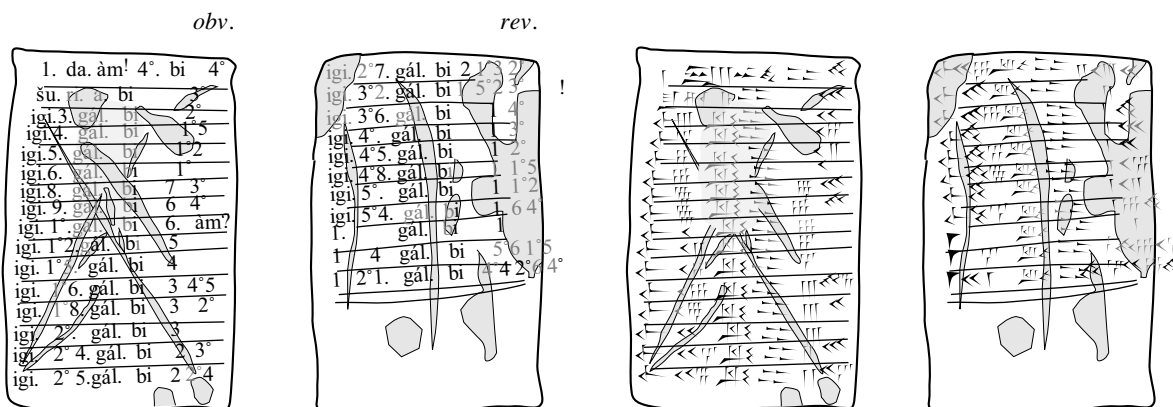 obv.
1. da. àm! 4°. bi 4°
šu. ri. a. bi 3°
igi.3. gál. bi 2°
igi.4. gál. bi 1°5
igi.5. gál. bi 1°2
igi.6. gál. bi 1°
igi.8. gál. bi 7 3°
igi. 9. gál. bi 6 4°
igi. 1°. gál. bi 6. àm?
igi. 1°2. gál. bi 5
igi. 1° gál. bi 4
igi. 6. gál. bi 3 4°5
igi. 1°8. gál. bi 3 2°
igi. 2°. gál. bi 3
igi. 2° 4. gál. bi 2 3°
igi. 2° 5.gál. bi 2 2°4
rev.
igi. 2°7. gál. bi 2 1°3 2°
igi. 3°2. gál. bi 1 5°2 3 !
igi. 3°6. gál. bi 1 4°
igi. 4°. gál. bi 1 3°
igi. 4°5. gál. bi 1 2°
igi. 4°8. gál. bi 1 1°5
igi. 5°. gál. bi 1 1°2
igi. 5°4. gál. bi 1 6 4°
1. gál. bi 1
1 4 gál. bi 5°6 1°5
1 2°1. gál. bi 4°4 2°6 4°